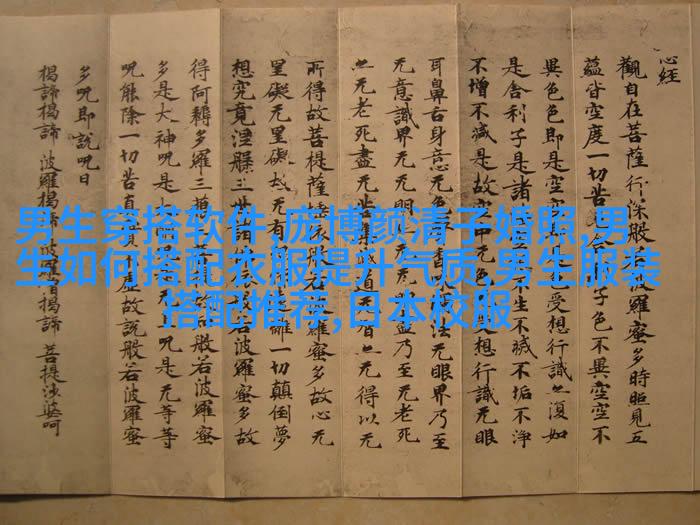 心经
觀自在菩薩行深般若波羅蜜多時照見五
蘊皆空度一切苦子色不異空空不
異色色即是空空受想行識亦復如
是舍利子是諸生不滅不垢不淨
不增不減是故空中无色想行識无眼
耳鼻舌身意无色香法无眼界乃至
无意識界无无明盡乃至无老死
亦无老死盡无苦集滅道无智亦无得以无
所得故菩提薩依若波羅蜜多故心无
罣礙无罣礙故无有離一切顛倒夢
想究竟涅槃三世諸依般若波羅蜜多故
得阿耨多羅三般若波羅蜜
多是大神呪是大呪是无等等
呪能除一切苦真實不虛故說般若波羅蜜
多呪即說呪曰
揭諦揭諦 波羅揭諦 揭諦 菩提薩婆呵
男生穿搭软件,庞博颜清子婚照,男
生如何搭配衣服提升气质,男生服装
搭配推荐,日本校服